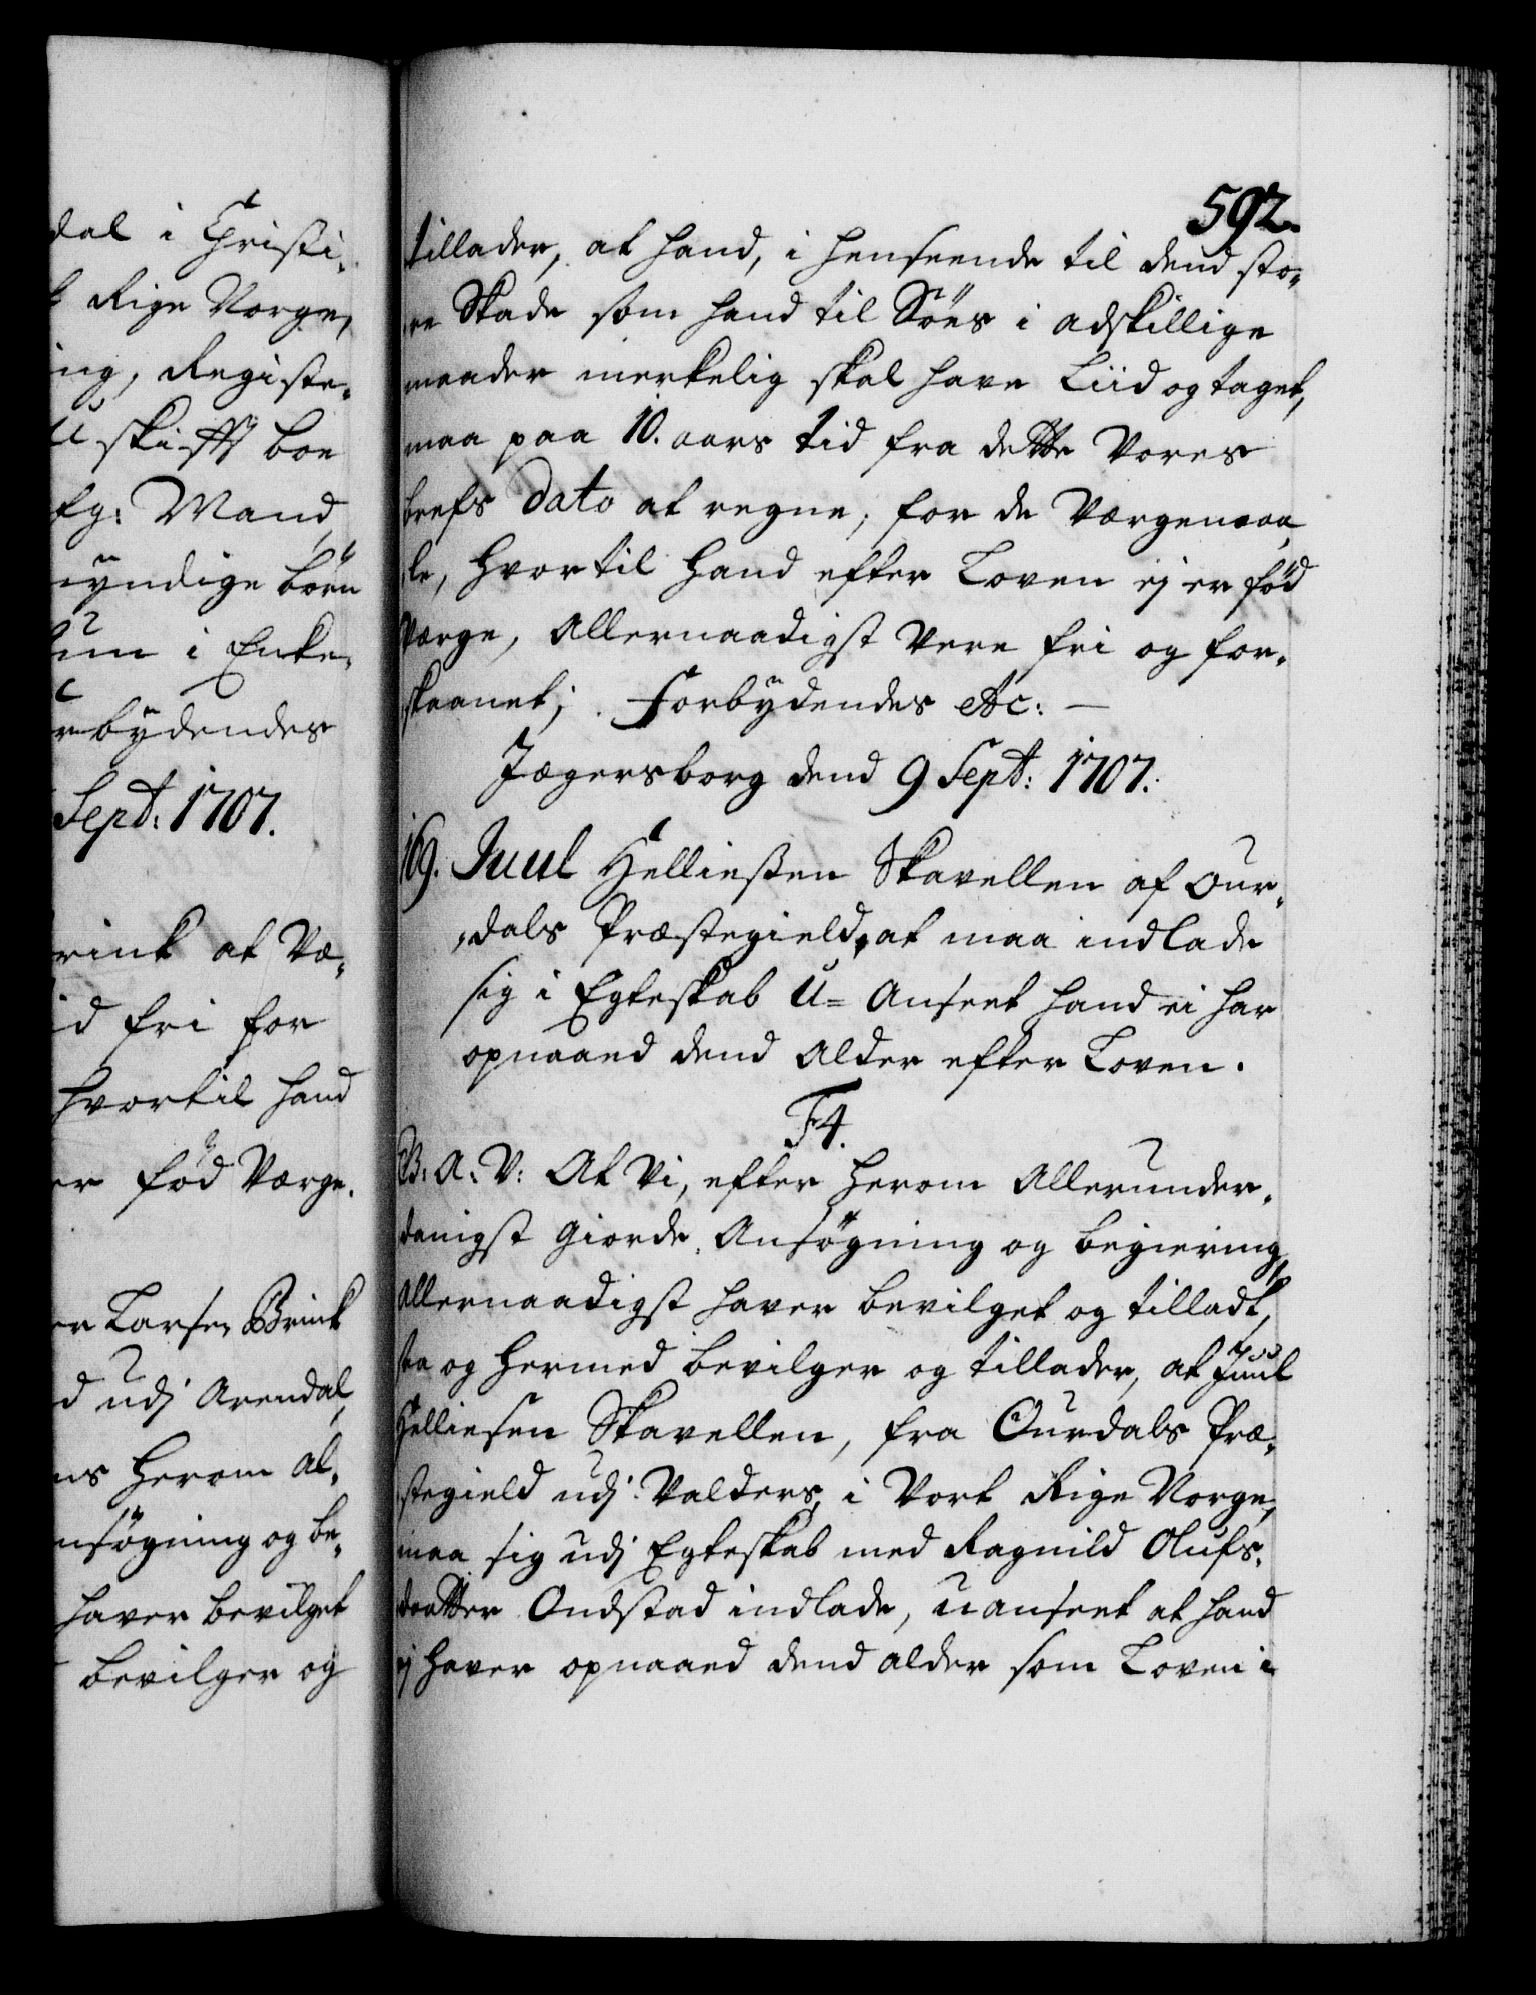 dal i Christi-
Rige Norge,
ing, Registe-
U skifft boe
fg: Mand,
myndige børn
i Enke-
rbydendes
Sept: 1707.
rink at Væ-
id fri for
hvortil hand
er fød Værge.
er Larsen Brink
d udj Arendal,
ns herom al-
nsøgning og be-
haver bevilget
bevilger og
592.
tillader, at hand, i henseende til dend sto-
re Skade som hand til Söes i adskillige
maader merkelig skal have Liid og taget,
maa paa 10. aars tid fra dette Vores
brefs Dato at regne, for de Værgemaa-
le, hvortil hand efter Loven ej er fød
Værge, Allernaadigst være fri og for-
skaanet; Forbydendes etc: —
Jægersborg dend 9 Sept: 1707.
169. Juul Helliessen Skavellen af Our-
dals Præstegield, at maa indlade
sig i Egteskab U-Anseet hand ei har
opnaaed dend Alder efter Loven.
F4.
G: A: V: At Vi, efter herom Allerunder-
danigst giorde Ansøgning og begiering,
Allernaadigst haver bevilget og tilladt,
saa og hermed bevilger og tillader, at Juul
Helliesen Skavellen, fra Ourdals Præ-
stegield udj Valders, i Vort Rige Norge,
maa sig udj Egteskab med Ragnild Olufs-
daatter Ondstad indlade, uanseet at hand
ej haver opnaaed dend alder som Loven i-